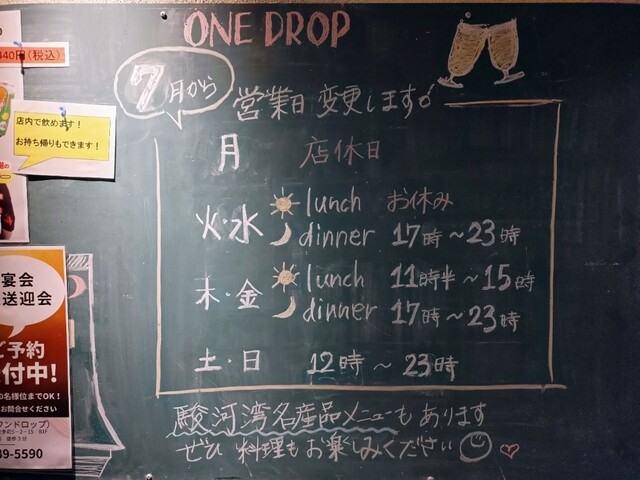 ONE DROP
7月から
営業日変更します♂
月 店休日
火・水 lunch お休み
dinner 17時～23時
木・金 lunch 11時半～15時
dinner 17時～23時
土・日 12時～23時
駿河湾名産品メニューもあります
ぜひ料理もお楽しみください
440円(税込)
店内で飲めます！
お持ち帰りもできます！
宴会
送迎会
ご予約
付中!
の名様位までOK！
お問合せください
ワンドロップ)
5-2-15 B1F
徒歩3分
39-5590